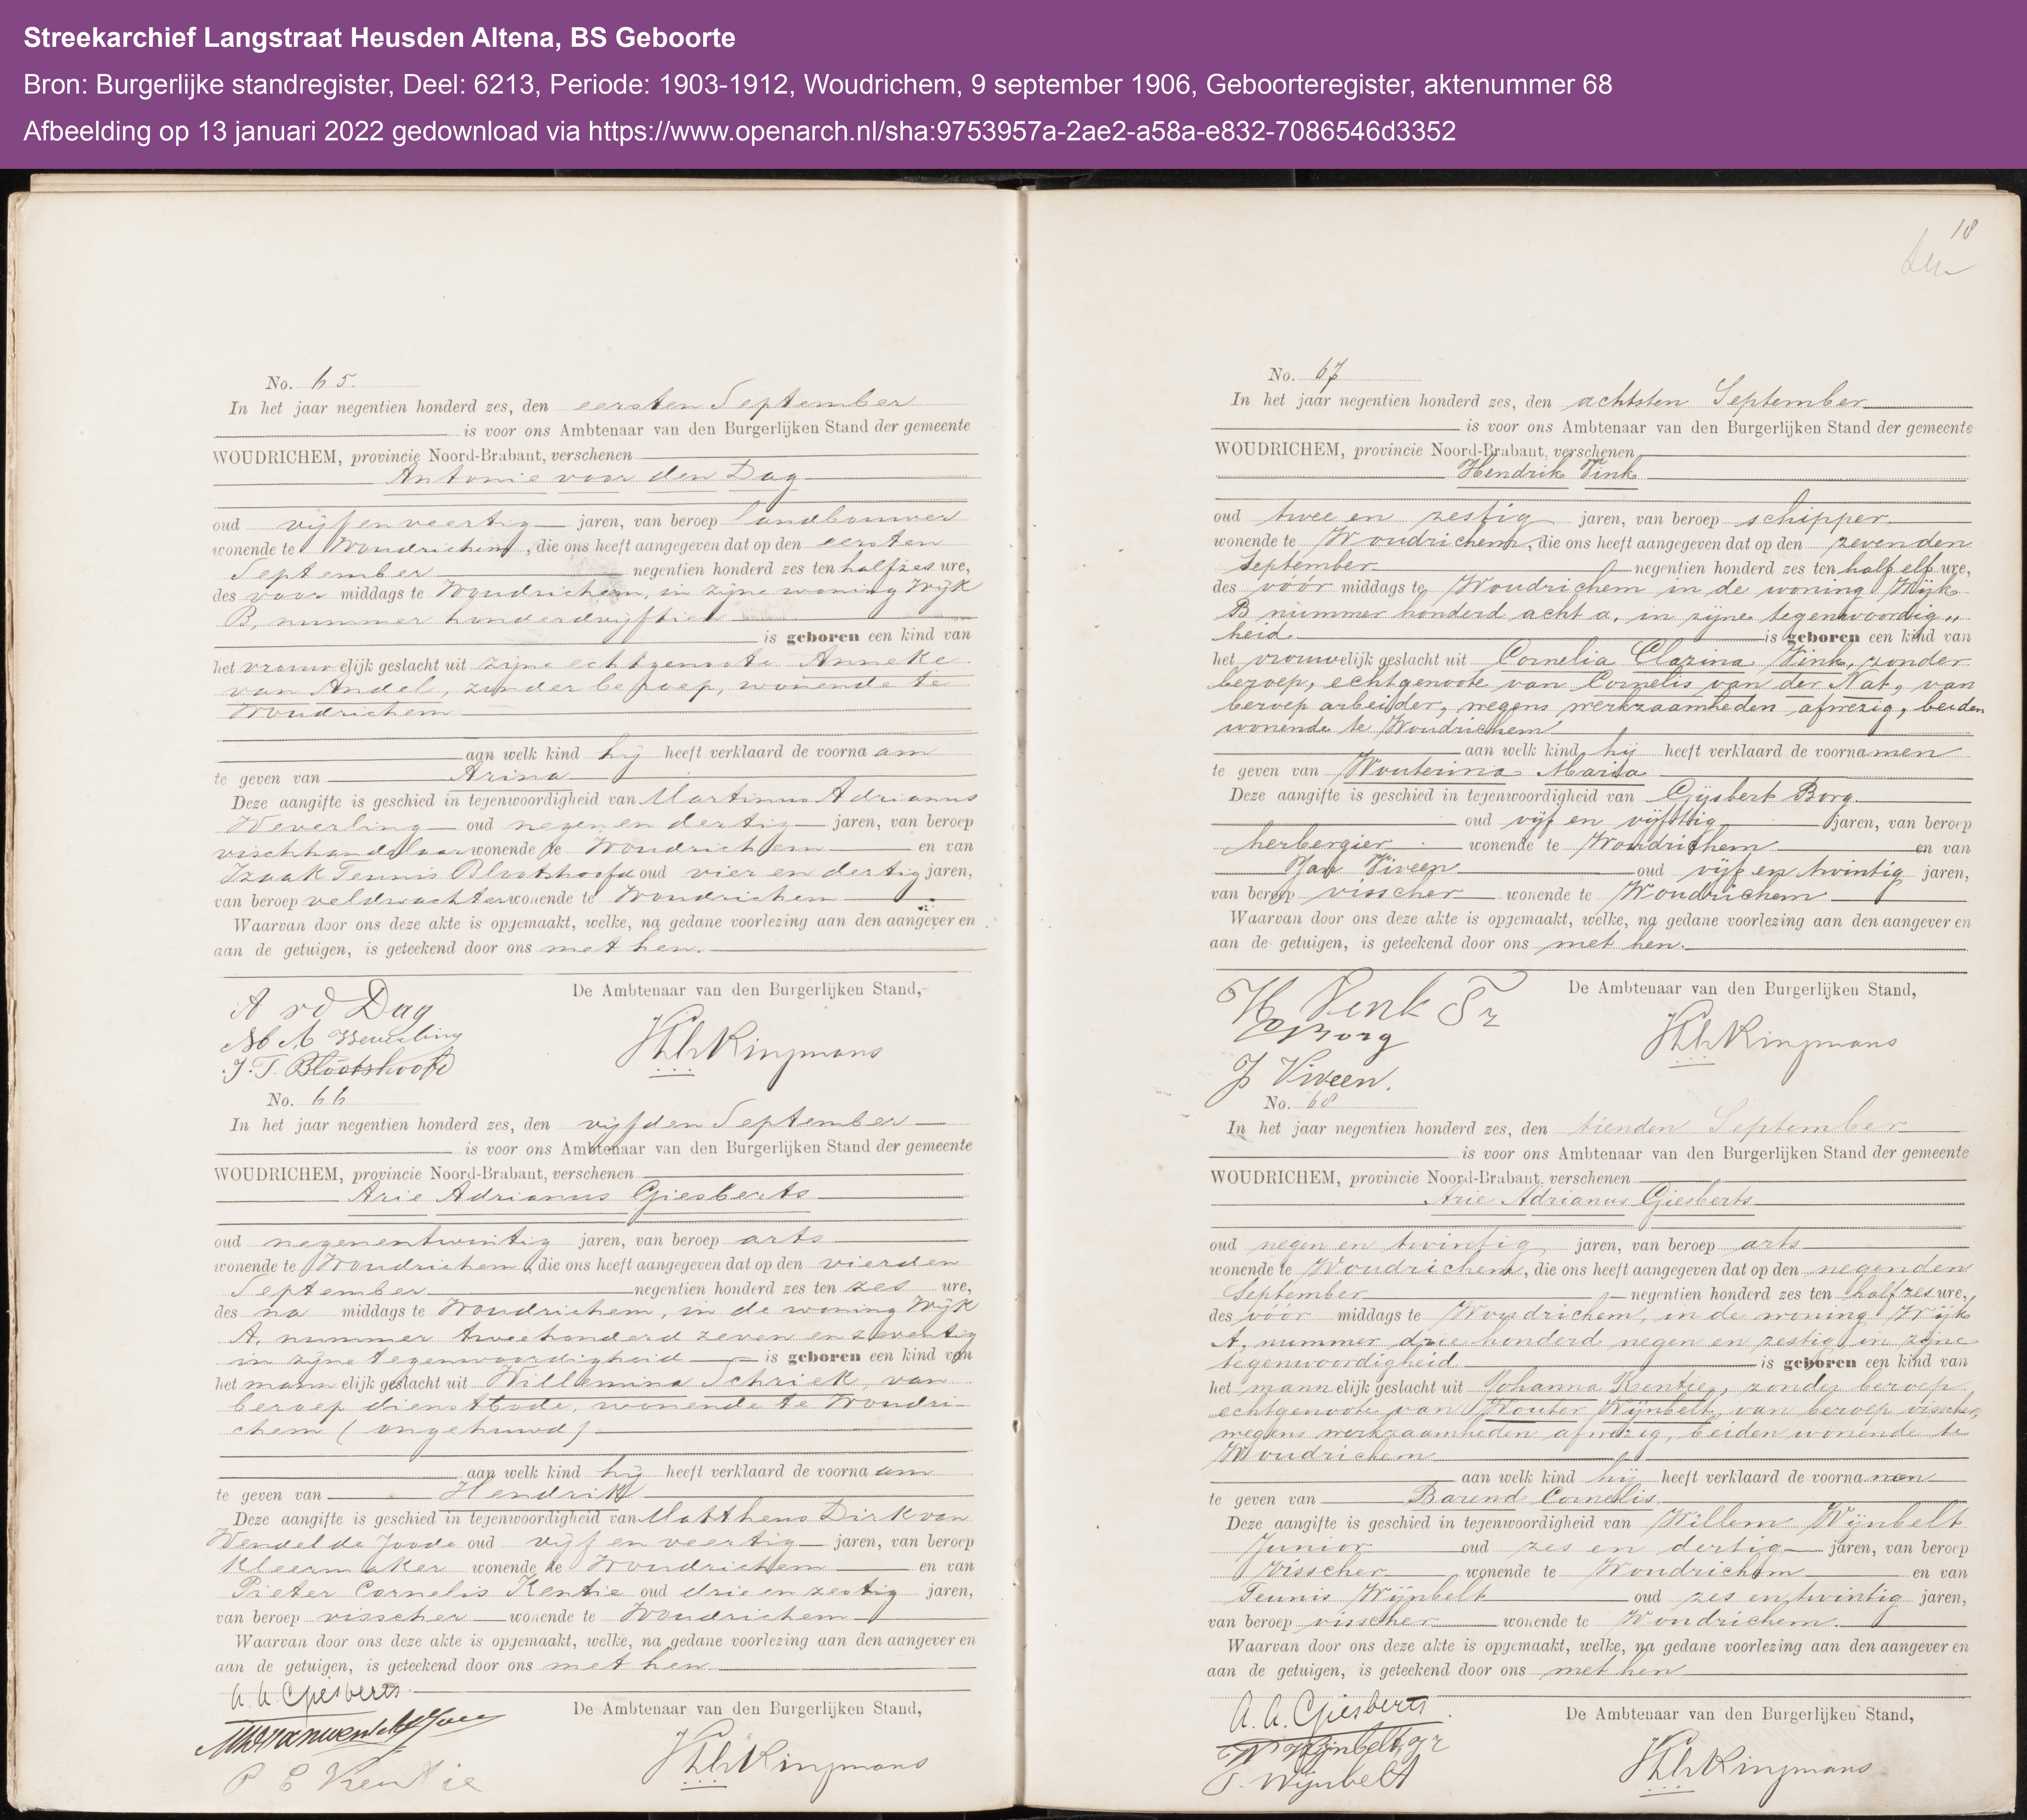 Streekarchief Langstraat Heusden Altena, BS Geboorte
Bron: Burgerlijke standregister, Deel: 6213, Periode: 1903-1912, Woudrichem, 9 september 1906, Geboorteregister, aktenummer 68
Afbeelding op 13 januari 2022 gedownload via https://www.openarch.nl/sha:9753957a-2ae2-a58a-e832-7086546d3352
No. 65.
In het jaar negentien honderd zes, den eersten September
is voor ons Ambtenaar van den Burgerlijken Stand der gemeente
WOUDRICHEM, provincie Noord-Brabant, verschenen
Antonie van den Dag
oud vijf en veertig jaren, van beroep landbouwer
wonende te Woudrichem, die ons heeft aangegeven dat op den eersten
September negentien honderd zes ten half zes ure,
des voor middags te Woudrichem, in zijne woning Wijk
B, nummer honderd vijftien
is geboren een kind van
het vrouwelijk geslacht uit zijne echtgenoote Anneke
van Andel, zonder beroep, wonende te
Woudrichem
aan welk kind hij heeft verklaard de voornaam
te geven van Arina
Deze aangifte is geschied in tegenwoordigheid van Martinus Adrianus
Weverling oud negen en dertig jaren, van beroep
vischhandelaar wonende te Woudrichem en van
Izaak Teunis Blootshoofd oud vier en dertig jaren,
van beroep veldwachter wonende te Woudrichem
Waarvan door ons deze akte is opgemaakt, welke, na gedane voorlezing aan den aangever en
aan de getuigen, is geteekend door ons met hen.
De Ambtenaar van den Burgerlijken Stand,
A vd Dag
M A Weverling
J. T. Blootshoofd
No. 66
In het jaar negentien honderd zes, den vijfden September
is voor ons Ambtenaar van den Burgerlijken Stand der gemeente
WOUDRICHEM, provincie Noord-Brabant, verschenen
Arie Adrianus Giesberts
oud negenentwintig jaren, van beroep arts
wonende te Woudrichem, die ons heeft aangegeven dat op den vierden
September negentien honderd zes ten zes ure,
des na middags te Woudrichem, in de woning Wijk
A, nummer tweehonderd zeven en zeventig
in zijne tegenwoordigheid is geboren een kind van
het mannelijk geslacht uit Willemina Schriek, van
beroep dienstbode, wonende te Woudri-
chem (ongehuwd)
aan welk kind hij heeft verklaard de voornaam
te geven van Hendrik
Deze aangifte is geschied in tegenwoordigheid van Mattheus Dirk van
Wendel de Joode oud vijf en veertig jaren, van beroep
kleermaker wonende te Woudrichem en van
Pieter Cornelis Kentie oud drie en zestig jaren,
van beroep visscher wonende te Woudrichem
Waarvan door ons deze akte is opgemaakt, welke, na gedane voorlezing aan den aangever en
aan de getuigen, is geteekend door ons met hen.
De Ambtenaar van den Burgerlijken Stand,
A. A. Giesberts
P C Kentie
18
No. 67
In het jaar negentien honderd zes, den achtsten September
is voor ons Ambtenaar van den Burgerlijken Stand der gemeente
WOUDRICHEM, provincie Noord-Brabant, verschenen
Hendrik Vink
oud twee en zestig jaren, van beroep schipper
wonende te Woudrichem, die ons heeft aangegeven dat op den zevenden
September negentien honderd zes ten half elf ure,
des vóór middags te Woudrichem in de woning Wijk
B nummer honderd acht a, in zijne tegenwoordig„
heid is geboren een kind van
het vrouwelijk geslacht uit Cornelia Clazina Vink, zonder
beroep, echtgenoote van Cornelis van der Nat, van
beroep arbeider, wegens werkzaamheden afwezig, beiden
wonende te Woudrichem
aan welk kind hij heeft verklaard de voornamen
te geven van Wouterina Maria
Deze aangifte is geschied in tegenwoordigheid van Gijsbert Borg
oud vijf en vijftig jaren, van beroep
herbergier wonende te Woudrichem en van
Jan Viveen oud vijf en twintig jaren,
van beroep visscher wonende te Woudrichem
Waarvan door ons deze akte is opgemaakt, welke, na gedane voorlezing aan den aangever en
aan de getuigen, is geteekend door ons met hen.
De Ambtenaar van den Burgerlijken Stand,
H Vink Sr
G Borg
J Viveen.
No. 68
In het jaar negentien honderd zes, den tienden September
is voor ons Ambtenaar van den Burgerlijken Stand der gemeente
WOUDRICHEM, provincie Noord-Brabant, verschenen
Arie Adrianus Giesberts
oud negen en twintig jaren, van beroep arts
wonende te Woudrichem, die ons heeft aangegeven dat op den negenden
September negentien honderd zes ten half zes ure,
des vóór middags te Woudrichem, in de woning Wijk
A, nummer drie honderd negen en zestig in zijne
tegenwoordigheid is geboren een kind van
het mannelijk geslacht uit Johanna Kentie, zonder beroep
echtgenoote van Wouter Wijnbelt, van beroep visscher,
wegens werkzaamheden afwezig, beiden wonende te
Woudrichem
aan welk kind hij heeft verklaard de voornamen
te geven van Barend Cornelis
Deze aangifte is geschied in tegenwoordigheid van Willem Wijnbelt
Junior oud zes en dertig jaren, van beroep
visscher wonende te Woudrichem en van
Teunis Wijnbelt oud zes en twintig jaren,
van beroep visscher wonende te Woudrichem.
Waarvan door ons deze akte is opgemaakt, welke, na gedane voorlezing aan den aangever en
aan de getuigen, is geteekend door ons met hen
De Ambtenaar van den Burgerlijken Stand,
A. A. Giesberts
W Wijnbelt Jr
T. Wijnbelt